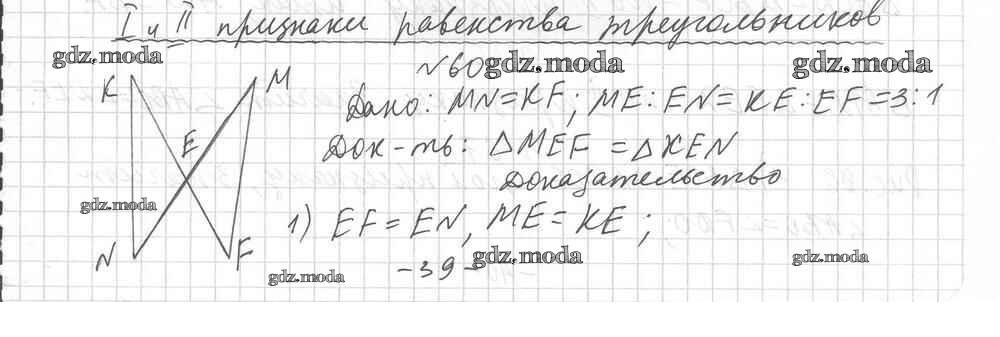 I и II признаки равенства треугольников
gdz.moda
№60 gdz.moda gdz.moda
K M
Дано: MN=KF; ME:EN=KE:EF=3:1
E
Док-ть: △MEF=△KEN
Доказательство
gdz.moda
1) EF=EN, ME=KE;
N F
-39-
gdz.moda gdz.moda gdz.moda